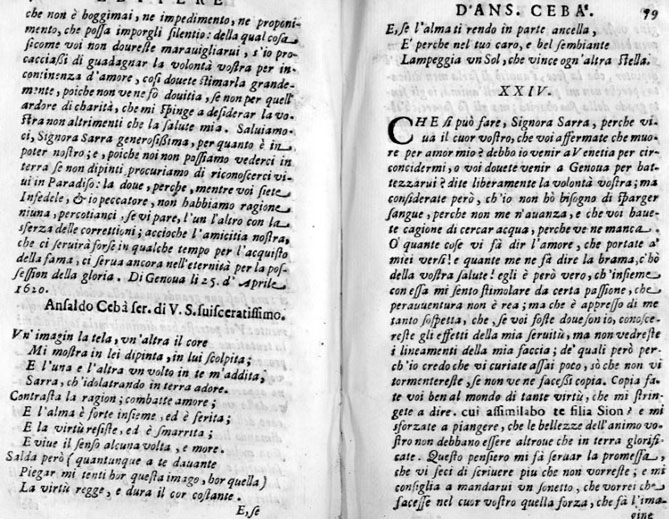 LETTERE
che non è hoggimai, ne impedimento, ne proponi-
mento, che possa imporgli silentio: della qual cosa
sicome voi non doureste marauigliarui, s'io pro-
cacciassi di guadagnar la volontà vostra per in-
continenza d'amore, così douete stimarla grande-
mente, poiche non ve ne fò douitia, se non per quell'
ardore di charità, che mi spinge a desiderar la vo-
stra non altrimenti che la salute mia. Saluiamo-
ci, Signora Sarra generosissima, per quanto è in
poter nostro; e, poiche noi non possiamo vederci in
terra se non dipinti, procuriamo di riconoscerci vi-
ui in Paradiso: la doue, perche, mentre voi siete
Infedele, & io peccatore, non habbiamo ragione
niuna, percotianci, se vi pare, l'un l'altro con la
sferza delle correttioni; accioche l'amicitia nostra,
che ci seruirà forse in qualche tempo per l'acquisto
della fama, ci serua ancora nell'eternità per la pos-
session della gloria. Di Genoua li 25. d'Aprile
1620.
Ansaldo Cebà ser. di V. S. suisceratissimo.
Vn' imagin la tela, vn'altra il core
Mi mostra in lei dipinta, in lui scolpita;
E l'una e l'altra vn volto in te m'addita,
Sarra, ch'idolatrando in terra adore.
Contrasta la ragion; combatte amore;
E l'alma è forte insieme, ed è ferita;
E la virtù resiste, ed è smarrita;
E viue il senso alcuna volta, e more.
Salda però (quantunque a te dauante
Piegar mi tenti hor questa imago, hor quella)
La virtù regge, e dura il cor costante.
E, se
D'ANS. CEBA. 79
E, se l'alma ti rendo in parte ancella,
E' perche nel tuo caro, e bel sembiante
Lampeggia vn Sol, che vince ogn'altra Stella.
XXIV.
CHE si può fare, Signora Sarra, perche vi-
ua il cuor vostro, che voi affermate che muo-
re per amor mio? debbo io venir a Venetia per cir-
concidermi, o voi douete venir a Genoua per bat-
tezzarui? dite liberamente la volontà vostra; ma
considerate però, ch'io non hò bisogno di sparger
sangue, perche non me n'auanza, e che voi haue-
te cagione di cercar acqua, perche ve ne manca.
O' quante cose vi fà dir l'amore, che portate a'
miei versi! e quante me ne fà dire la brama, c'hò
della vostra salute! egli è però vero, ch'insieme
con essa mi sento stimolare da certa passione, che
perauuentura non è rea; ma che è appresso di me
tanto sospetta, che, se voi foste doue son io, conosce-
reste gli effetti della mia seruitù, ma non vedreste
i lineamenti della mia faccia; de' quali però per-
ch'io credo che vi curiate assai poco, sò che non vi
tormentereste, se non ve ne facessi copia. Copia fa-
te voi ben al mondo di tante virtù, che mi strin-
gete a dire. cui assimilabo te filia Sion? e mi
sforzate a piangere, che le bellezze dell'animo vo-
stro non debbano essere altroue che in terra glorifi-
cate. Questo pensiero mi fà seruar la promessa,
che vi feci di scriuere piu che non vorreste; e mi
consiglia a mandarui vn sonetto, che vorrei che
facesse nel cuor vostro quella forza, che fà l'ima-
gine